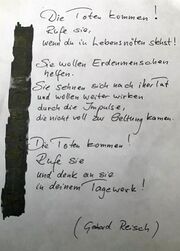 Die Toten kommen!
Rufe sie,
wenn du in Lebensnöten stehst!
Sie wollen Erdenmenschen
helfen.
Sie sehnen sich nach ihrer Tat
und wollen weiter wirken
durch die Impulse,
die nicht voll zur Geltung kamen.
Die Toten kommen!
Rufe sie
und denk an sie
in deinem Tagewerk!
(Gerhard Reisch)